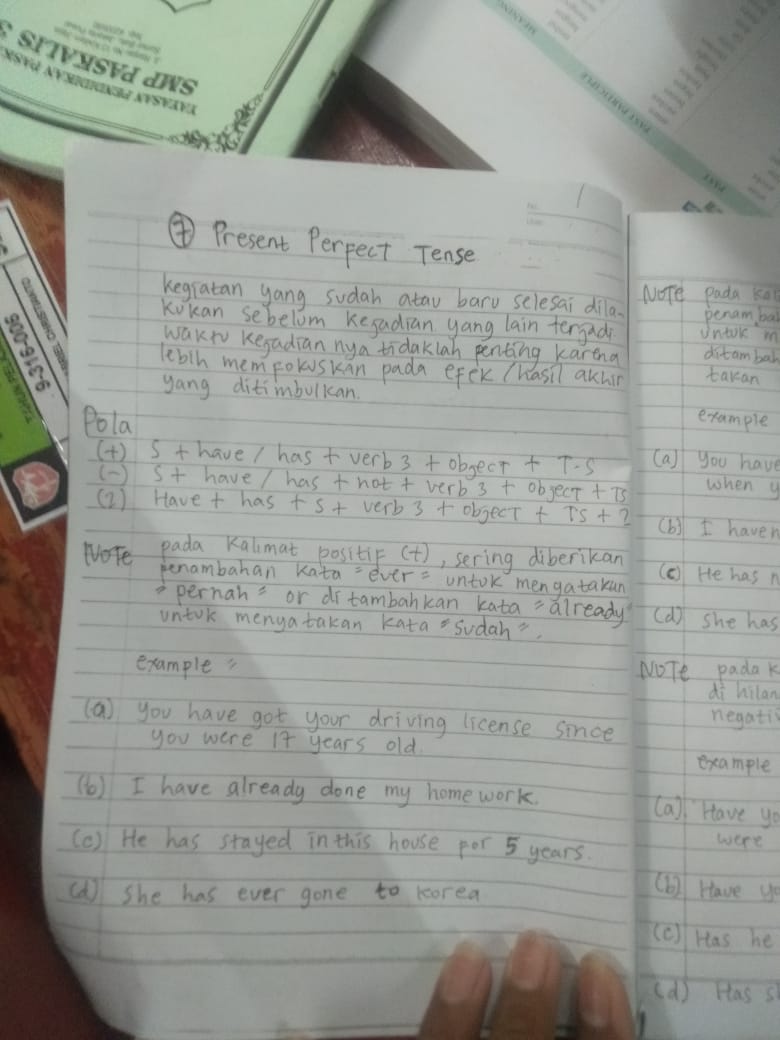 YAYASAN PENDIDIKAN PASK
SMP PASKALIS 3
MEANING
PAST PARTICIPLE
PAST
9-316-006
No.
Date.
1
⑦ Present Perfect Tense
kegiatan yang sudah atau baru selesai dila-
kukan sebelum kejadian yang lain terjadi
waktu kejadian nya tidaklah penting karena
lebih memfokuskan pada efek / hasil akhir
yang ditimbulkan.
Pola
(+) S + have / has + verb 3 + object + T.S
(-) S + have / has + not + verb 3 + object + TS
(?) Have + has + S + verb 3 + object + TS + ?
NOTE pada kalimat positif (+), sering diberikan
penambahan kata "ever" untuk mengatakan
"pernah" or ditambahkan kata "already"
untuk menyatakan kata "sudah".
example =
(a) You have got your driving license since
you were 17 years old.
(b) I have already done my home work.
(c) He has stayed in this house for 5 years.
(d) She has ever gone to korea
NOTE pada kal
penambah
untuk m
ditambah
takan
example
(a) You have
when y
(b) I haven
(c) He has n
(d) She has
NOTE pada k
di hilan
negativ
example
(a). Have yo
were
(b) Have yo
(c) Has he
(d) Has s